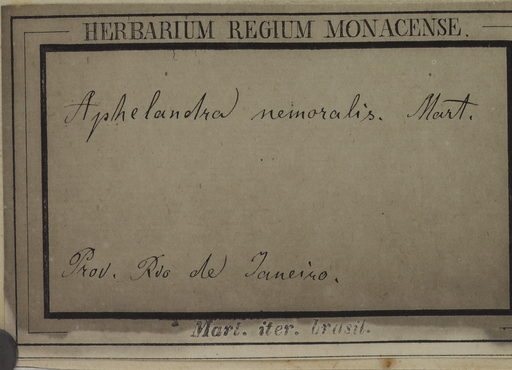 HERBARIUM REGIUM MONACENSE.
Aphelandra nemoralis. Mart.
Prov. Rio de Janeiro.
Mart. iter. brasil.